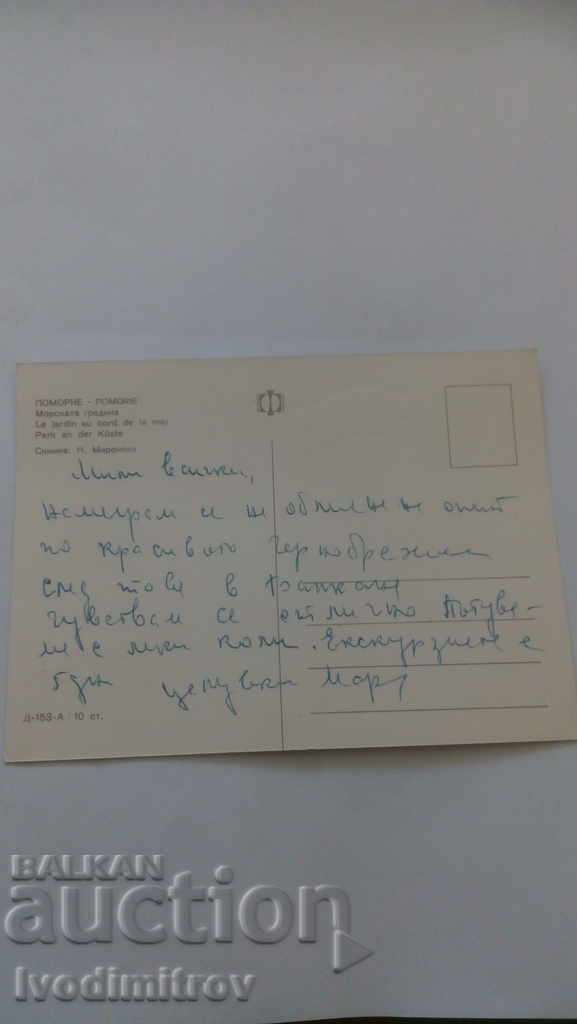 ПОМОРИЕ - POMORIE
Морската градина
Le jardin au bord de la mer
Park an der Küste
Снимка:
Мили всички,
намирам се на
по красивото Черноморие
след това в Балкана
чувствам се отлично Пътува-
ме с леки коли. Екскурзията е
5 дни целувки
Д-153-А / 10 ст.
BALKAN
auction
Ivodimitrov